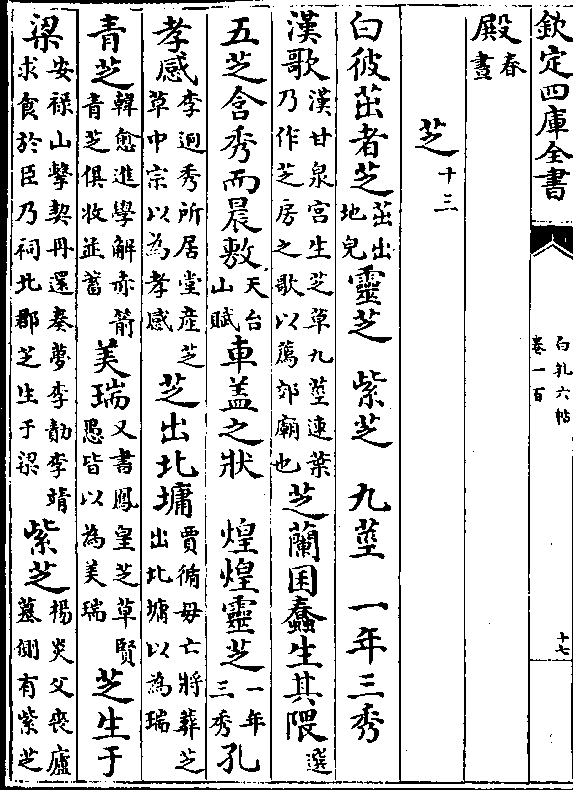 欽定四庫全書 白孔六帖 卷一百 十七
殿 春晝
芝 十三
白彼茁者芝 茁出地皃 靈芝 紫芝 九莖 一年三秀
漢歌 漢甘泉宮生芝草九莖連葉乃作芝房之歌以薦郊廟也 芝蘭囯蠢生其隈 選
五芝含秀而晨敷 天台山賦 車盖之狀 煌煌靈芝 一年三秀 孔
孝感 李迥秀所居堂產芝草中宗以為孝感 芝出北墉 賈循毋亡將葬芝出北墉以為瑞
青芝 韓愈進學解赤箭青芝俱收並蓄 美瑞 又書鳳皇芝草賢愚皆以為美瑞 芝生于
梁 安禄山擊契丹還奏夢李勣李靖求食於臣乃祠北郡芝生于梁 紫芝 楊炎父喪廬墓側有紫芝